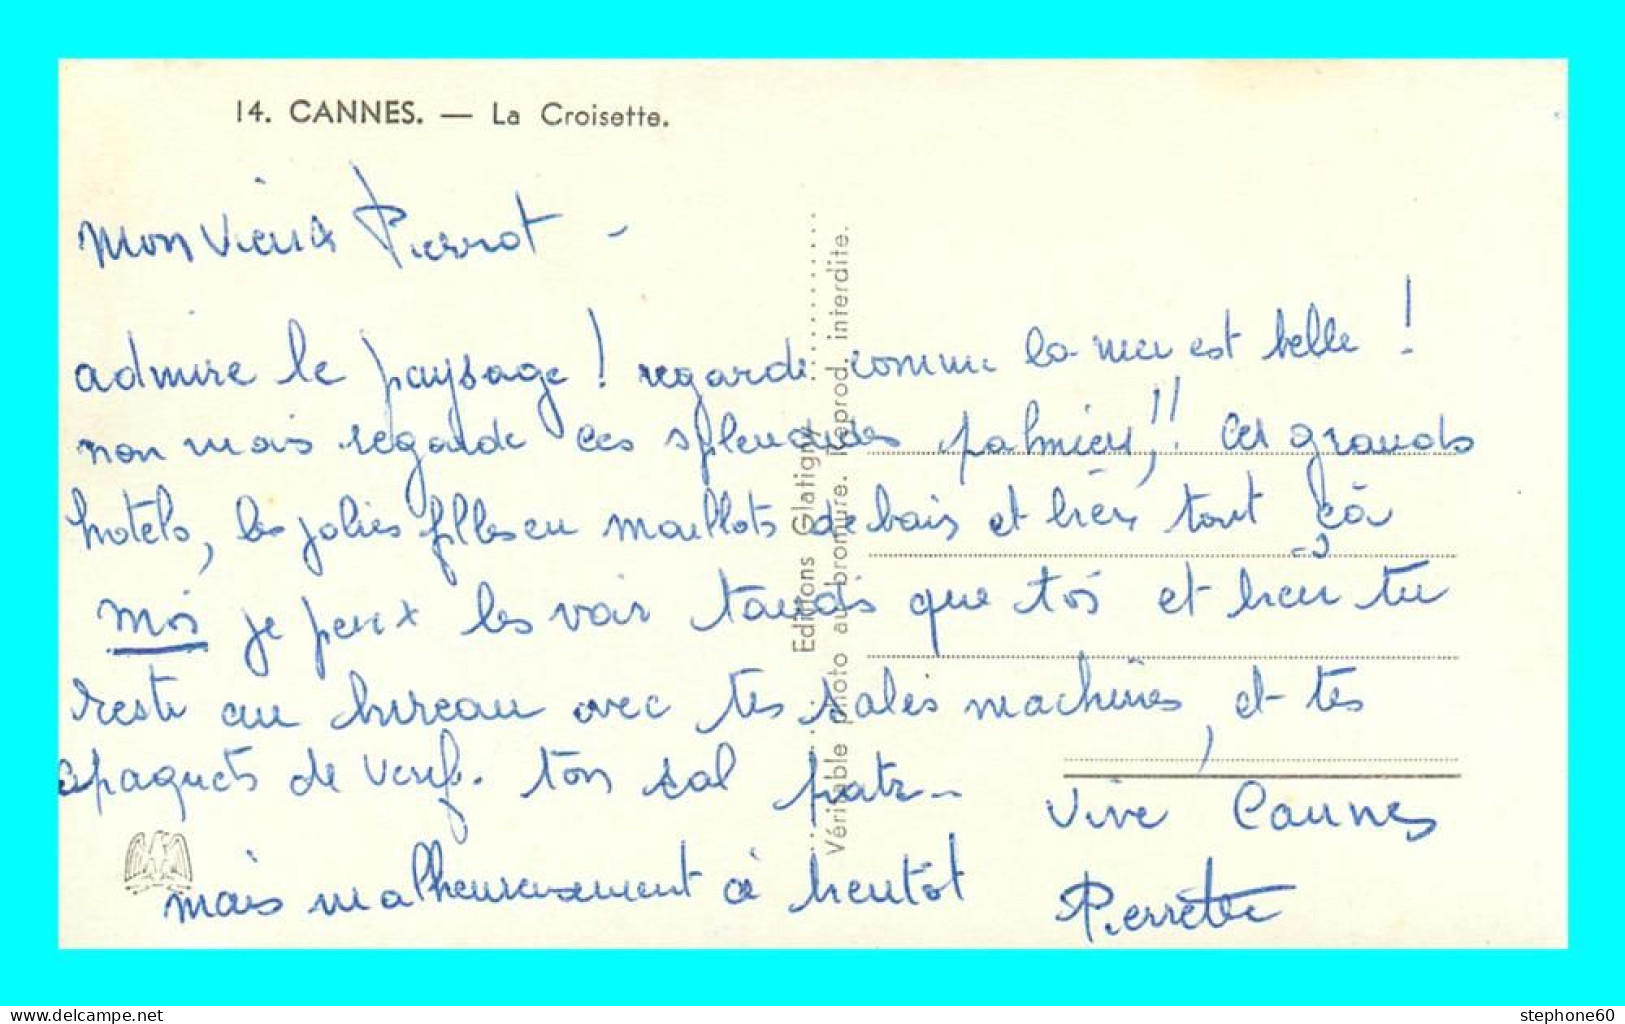 14. CANNES. — La Croisette.
Mon vieux Pierrot -
admire le paysage ! regarde comme la mer est belle !
non mais regarde ces splendides palmiers, !! ces grands
hotels, les jolies filles en maillots de bain et bien tout çà
moi je peux les voir tandis que toi et bien tu
reste au bureau avec tes sales machines, et tes
paquets de ton sal
mais malheureusement à bientôt
Vive Cannes
Pierrette
Editions Glatigny
Véritable photo au bromure. Reprod. interdite.
delcampe.net
stephone60